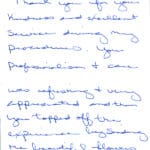 Thank you for your
kindness and excellent
service during my
procedures. Your
professionalism & care
was refreshing & very
appreciated and then
you topped off the
experience by sending
the beautiful flowers